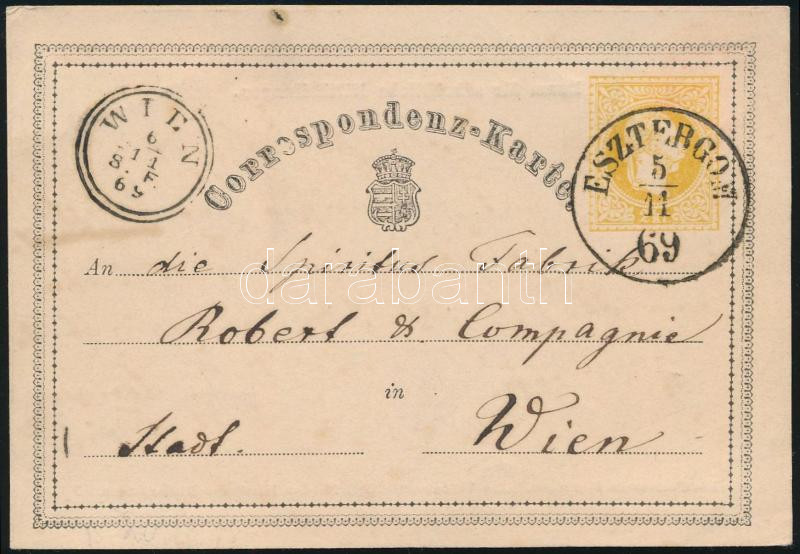 WIEN
6
11
8. F.
69
Correspondenz-Karte.
ESZTERGOM
5
11
69
An die Spiritus Fabrik
Robert & Compagnie
in
Stadt. Wien
darabanth